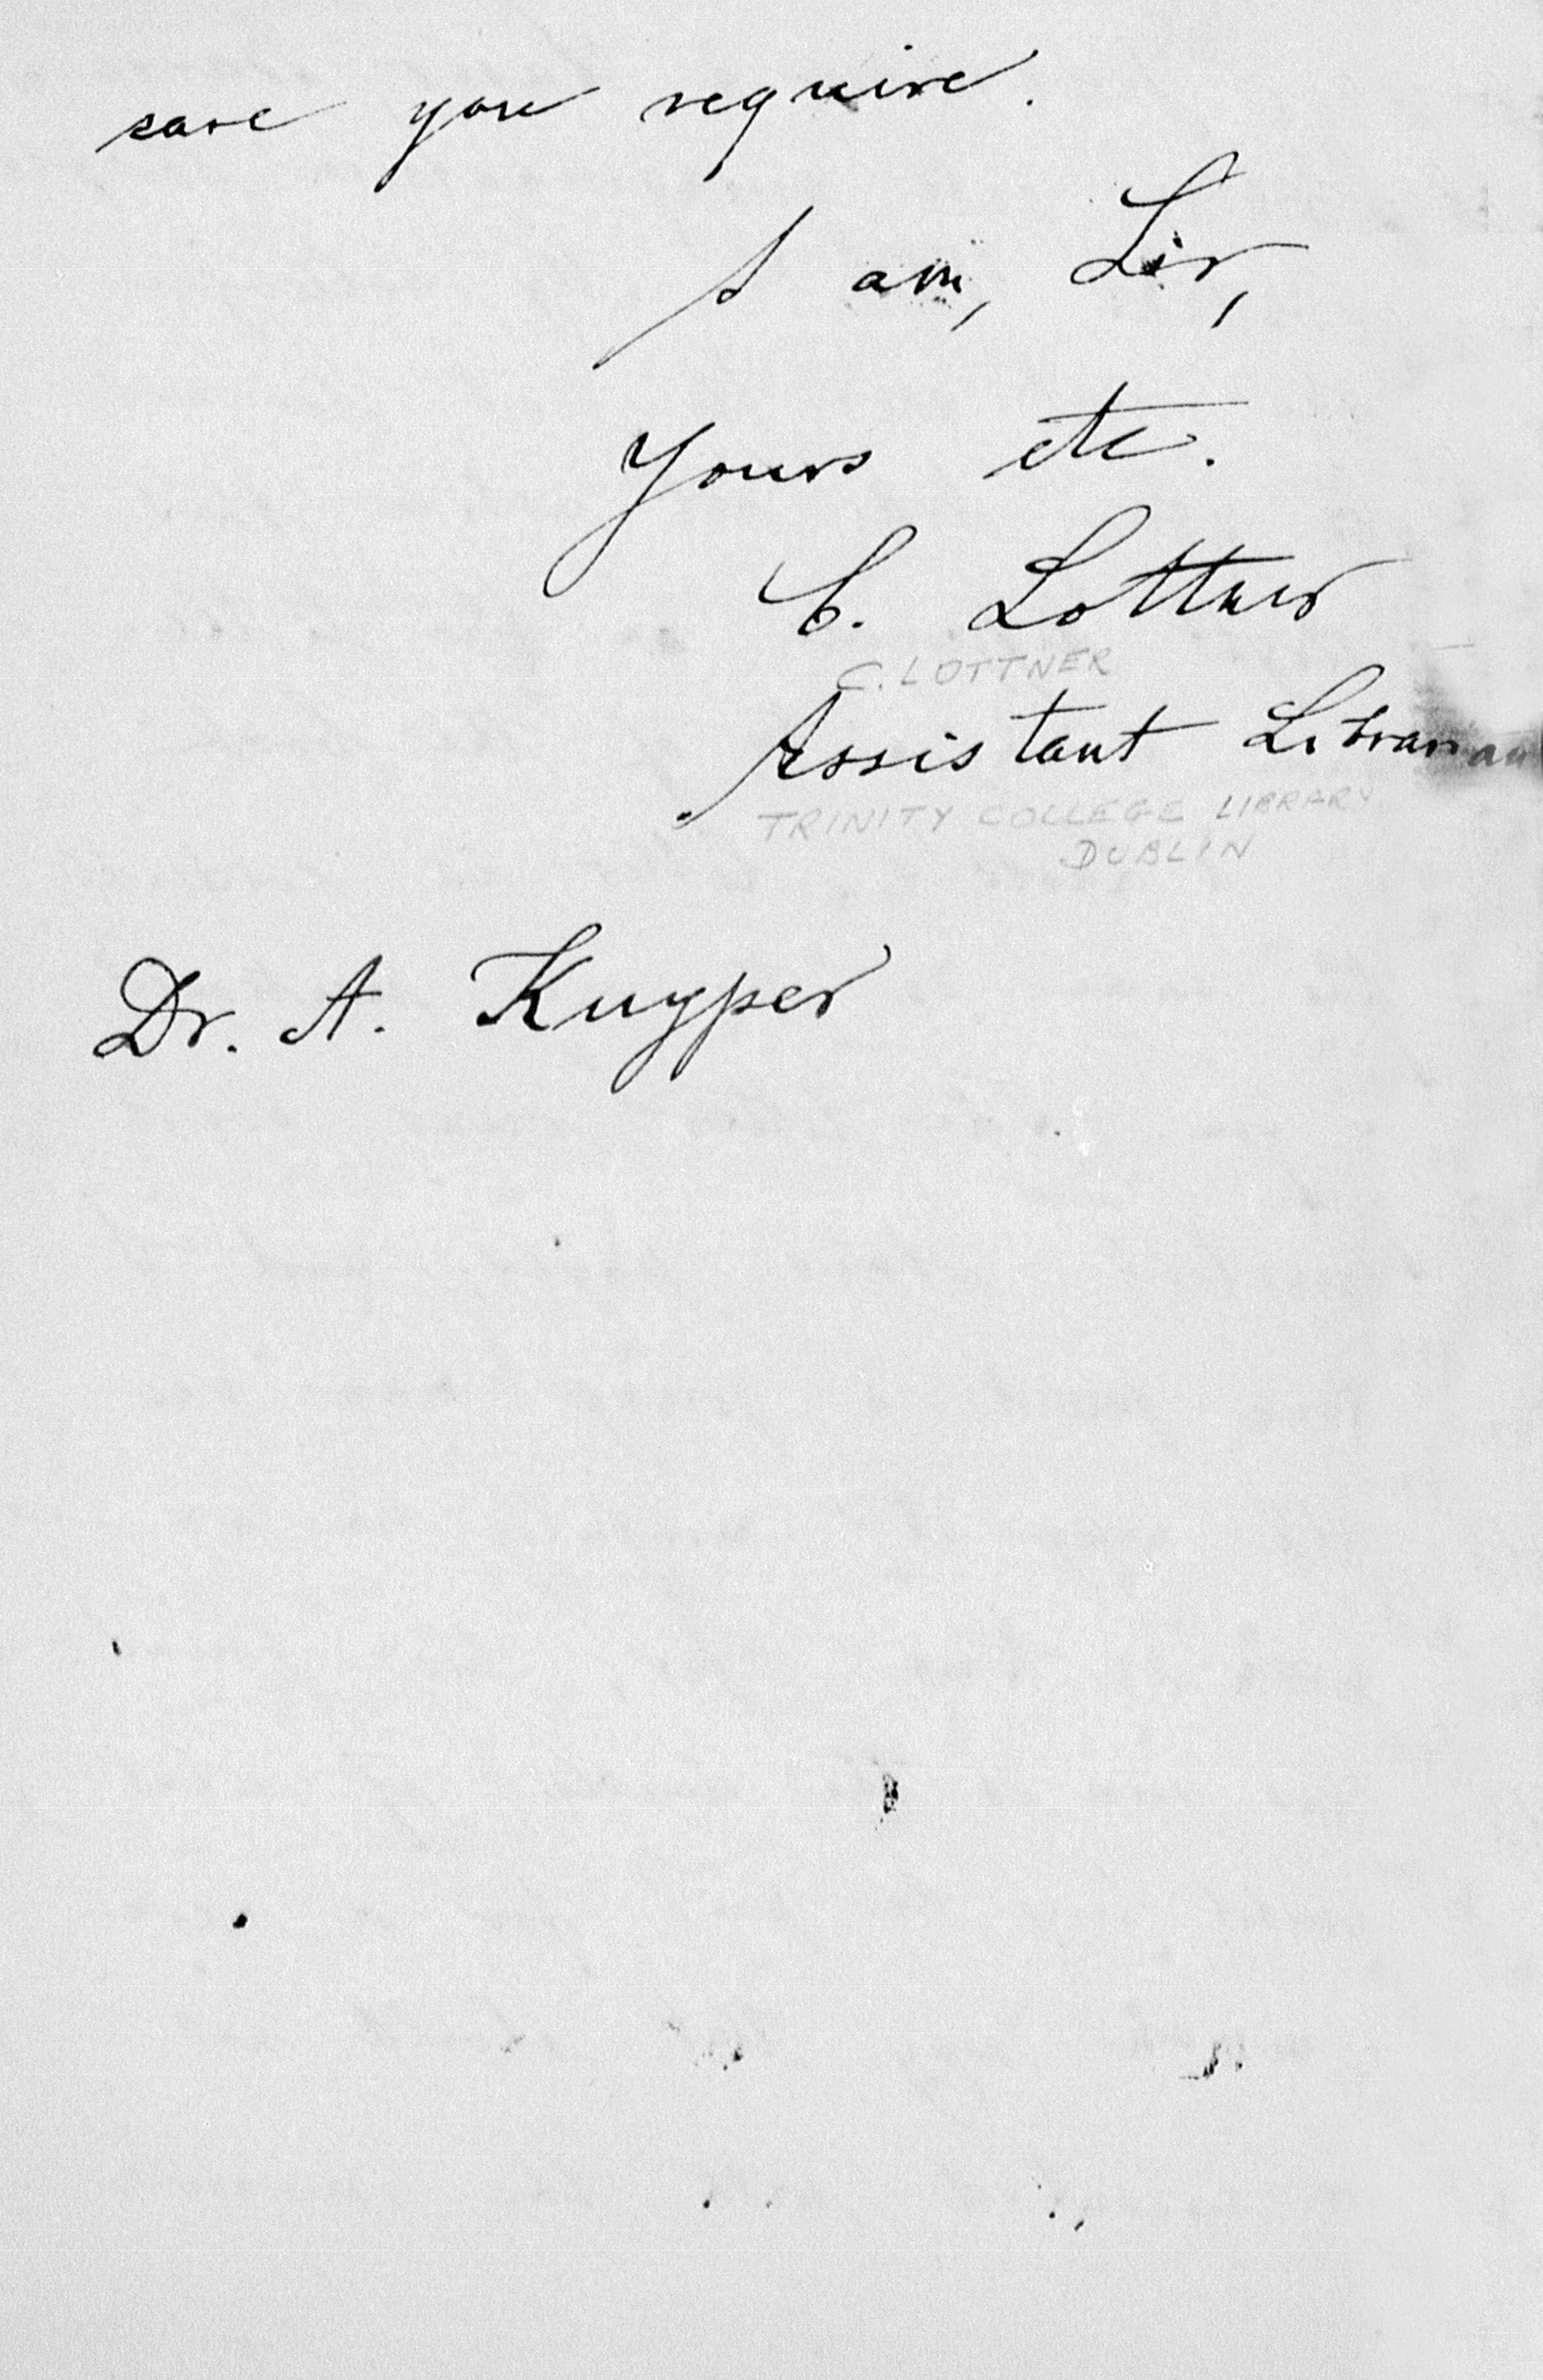 case you require.
I am, Sir,
Yours etc.
C. Lottner
C. LOTTNER
Assistant Librarian
TRINITY COLLEGE LIBRARY
DUBLIN
Dr. A. Kuyper